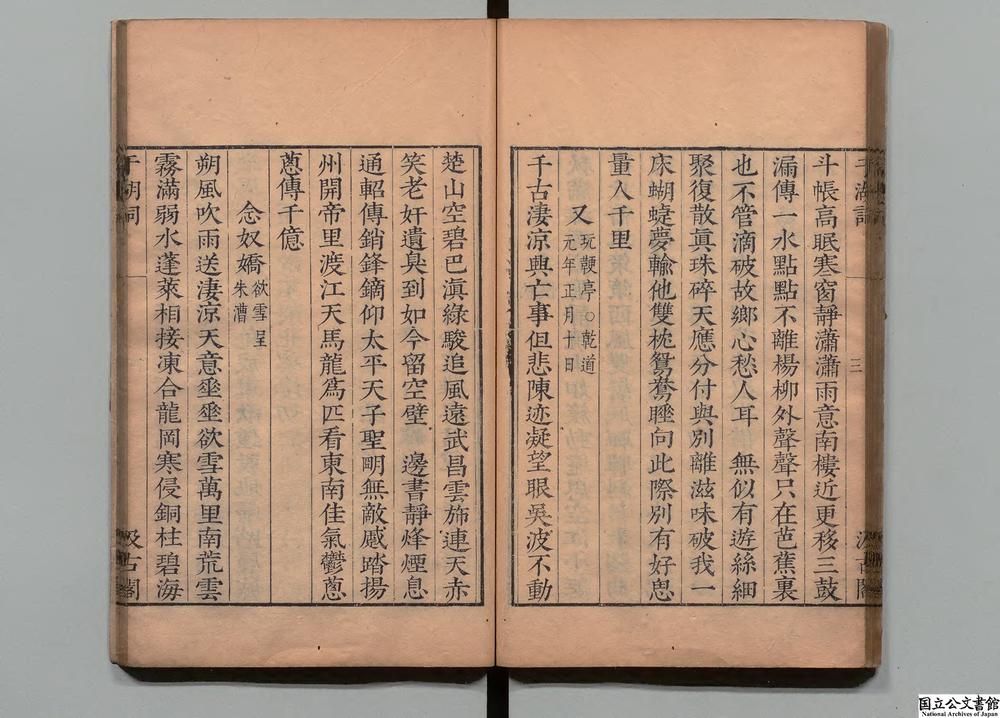 于湖詞
三
汲古閣
斗帳高眠寒窗靜瀟瀟雨意南樓近更移三鼓
漏傳一水點點不離楊柳外聲聲只在芭蕉裏
也不管滴破故鄉心愁人耳 無似有遊絲細
聚復散眞珠碎天應分付與別離滋味破我一
床蝴蜨夢輸他雙枕鴛鴦睡向此際別有好思
量人千里
又 玩鞭亭○乾道
元年正月十日
千古淒涼興亡事但悲陳迹凝望眼吳波不動
楚山空碧巴滇綠駿追風遠武昌雲斾連天赤
笑老奸遺臭到如今留空壁 邊書靜烽煙息
通軺傳銷鋒鏑仰太平天子聖明無敵蹙踏揚
州開帝里渡江天馬龍爲匹看東南佳氣鬱蔥
蔥傳千億
念奴嬌 欲雪呈
朱漕
朔風吹雨送淒涼天意埀埀欲雪萬里南荒雲
霧滿弱水蓬萊相接凍合龍岡寒侵銅柱碧海
于湖詞
汲古閣
国立公文書館
National Archives of Japan